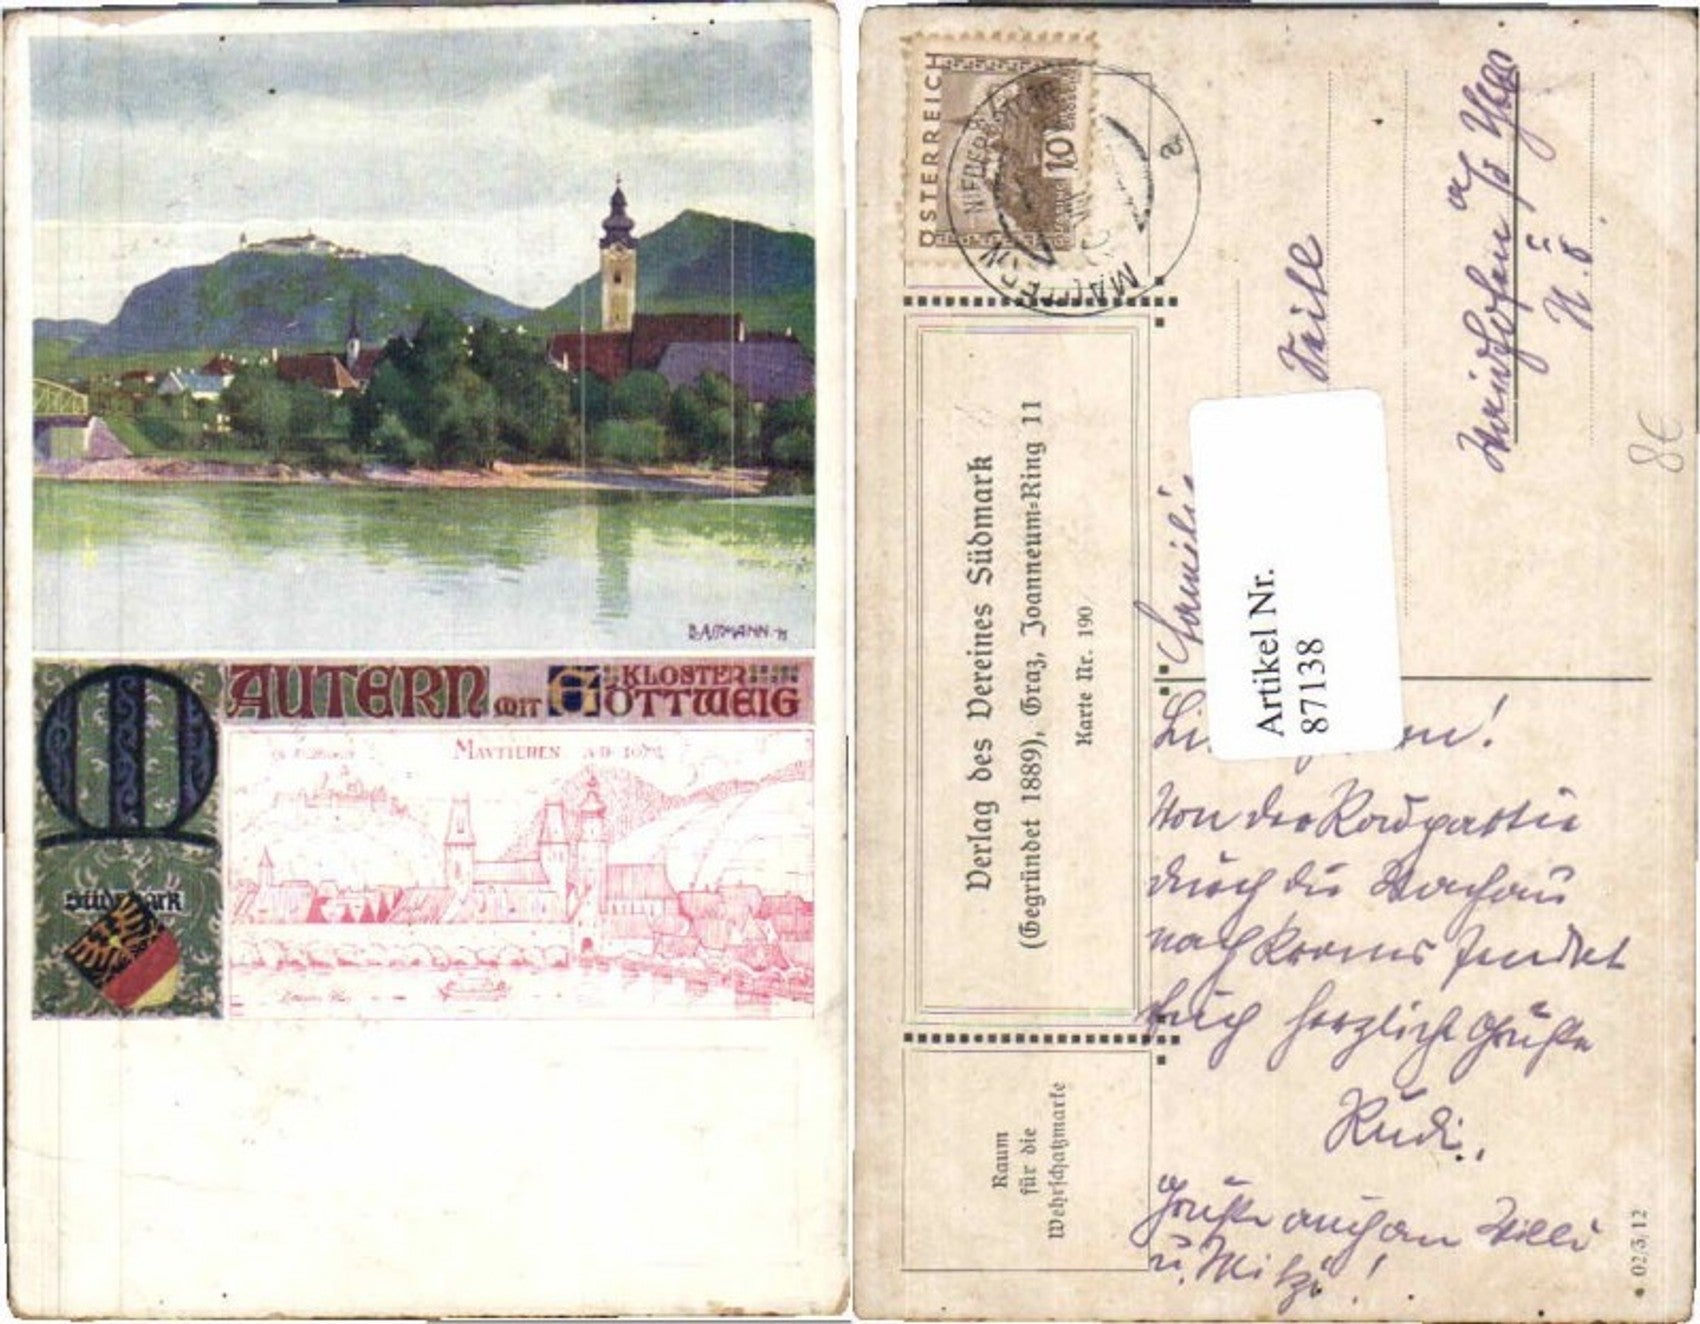 BAMANN
MAUTERN MIT KLOSTER GÖTTWEIG
MAVTTEREN A.D. 1672
Südmark
ÖSTERREICH
10
MAUTERN
NIEDER
a
Verlag des Vereines Südmark
(Gegründet 1889), Graz, Joanneum-Ring 11
Karte Nr. 190
Raum
für die
Wehrschatzmarke
Familie
Artikel Nr.
87138
Waidhofen a/d Ybbs
N. Ö.
8€
Von der Radpartie
durch die Wachau
nach Krems sendet
Euch herzliche Grüße
Rudi.
Grüße auch an Willi
u. Mitzi!
02/3/12